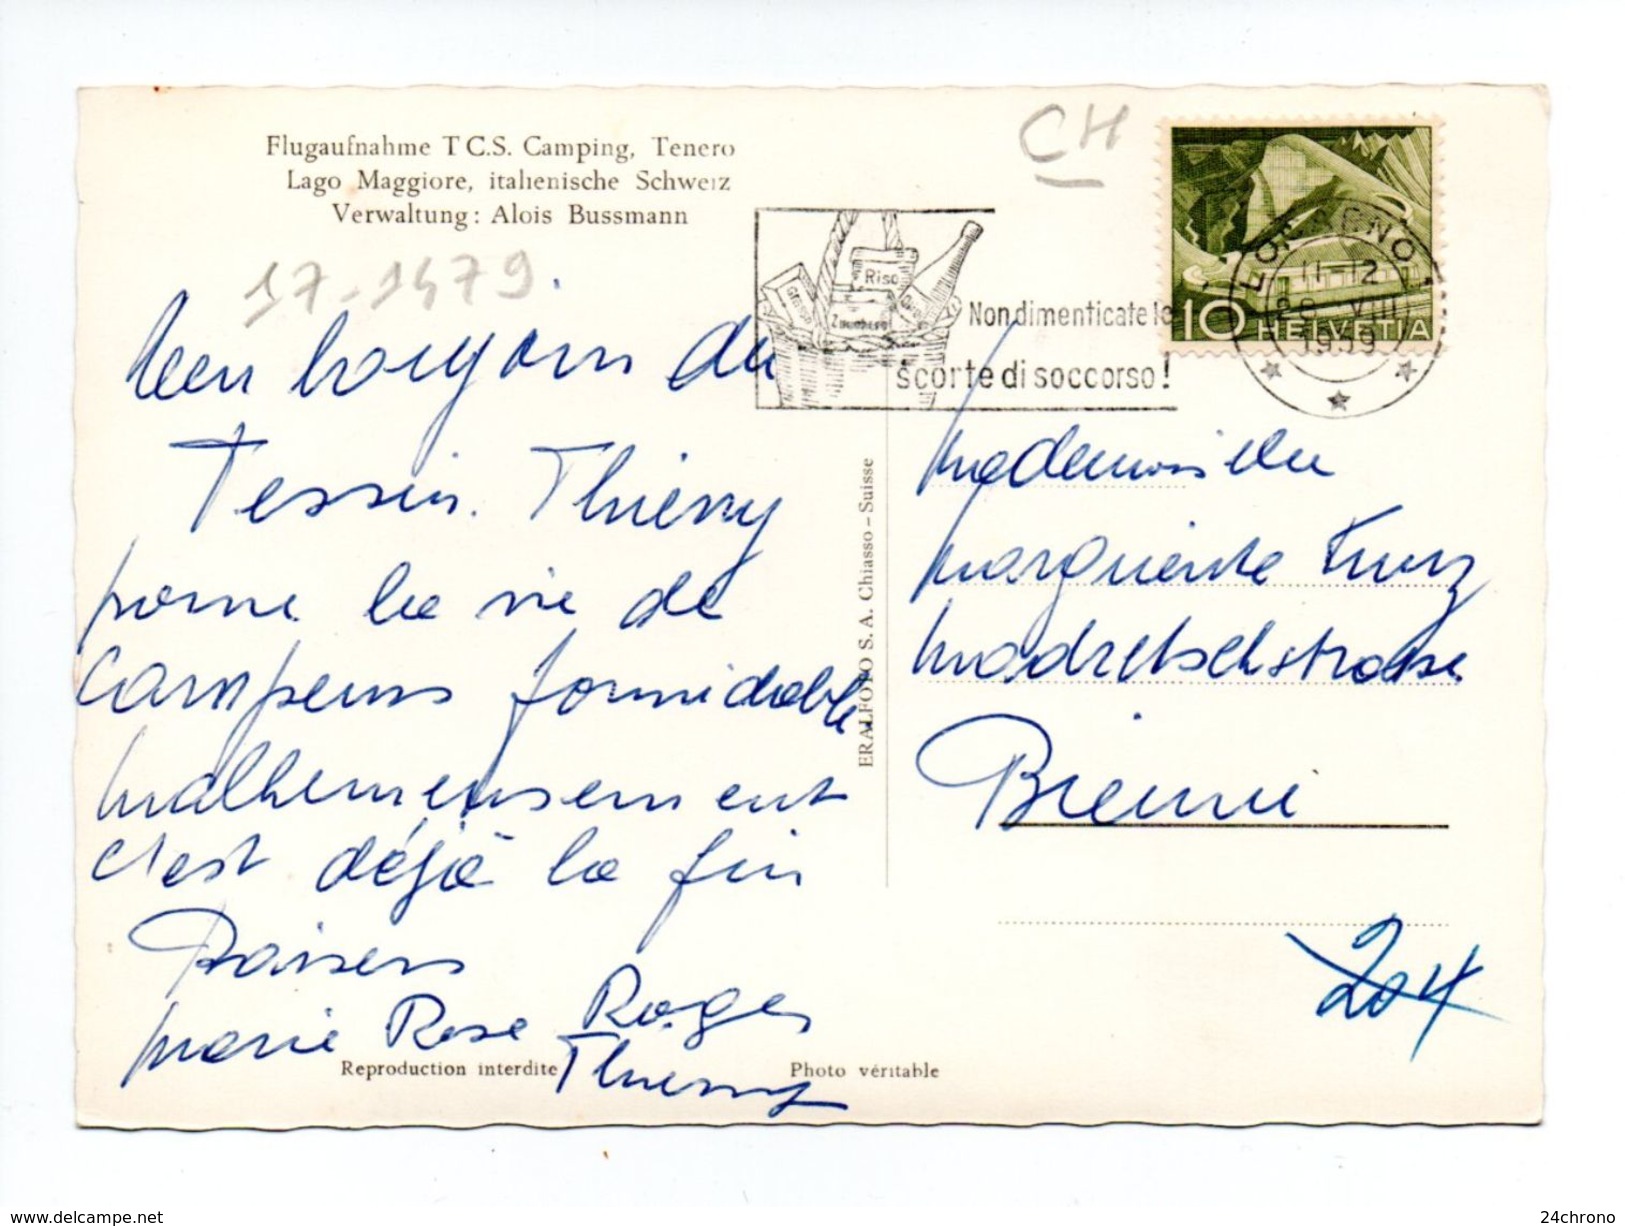 Flugaufnahme T C.S. Camping, Tenero
Lago Maggiore, italienische Schweiz
Verwaltung: Alois Bussmann
17-1479.
CH
Riso
Zucchero
Non dimenticate le
scorte di soccorso!
10 HELVETIA
LOCARNO 1
11-12
VIII
1959
du
Tessin. Thierry
la vie de
campeurs formidable
malheureusement
c'est déjà la fin
Baisers
Marie Rose Roger
Thierry
ERALFOTO S. A. Chiasso - Suisse
Mademoiselle
Marguerite Kunz
Madretschstrasse
Bienne
204
Reproduction interdite
Photo véritable
www.delcampe.net
24chrono